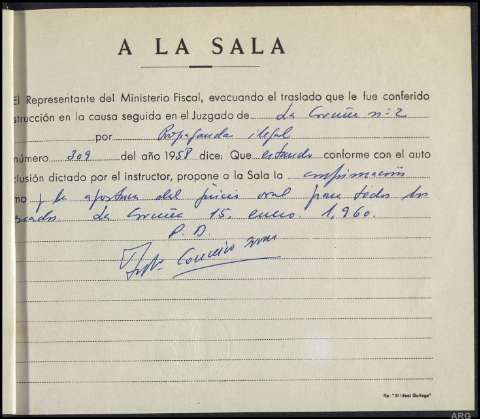 A LA SALA
El Representante del Ministerio Fiscal, evacuando el traslado que le fue conferido
strucción en la causa seguida en el Juzgado de La Coruña nº 2
por Propaganda ilegal
número 309 del año 1958 dice: Que estando conforme con el auto
clusión dictado por el instructor, propone a la Sala la confirmación
mo y la apertura del juicio oral para todos los
sados. La Coruña 15. enero. 1,960.
P. D.
ARG